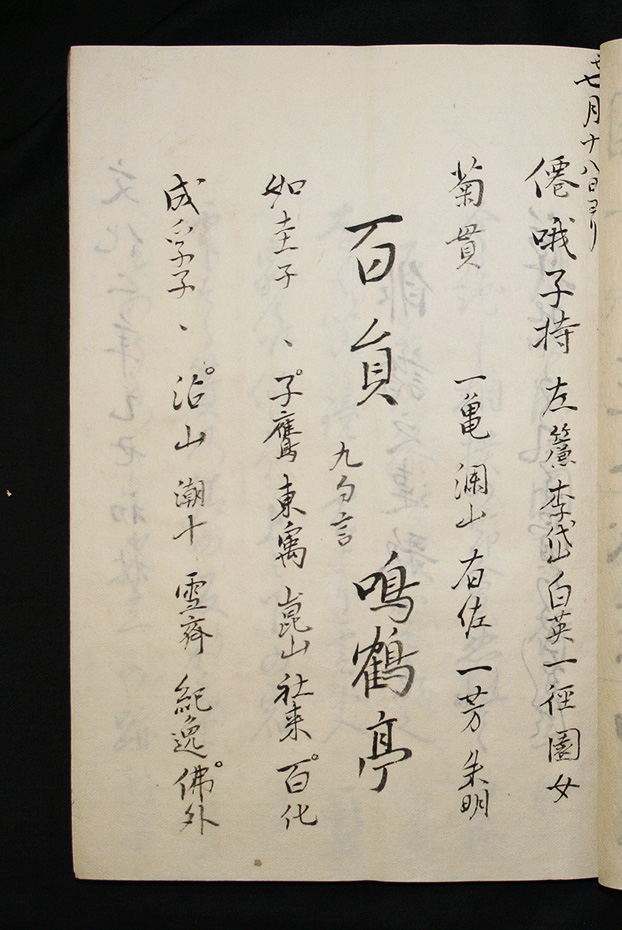 七月十八日ヨリ
僊哦子持 左簾 李岱 白英 一徑 園女
菊貫 一亀 澜山 右佐 一芳 朱明
百員 九句言 鳴鶴亭
如圭子、子鷹 東寓 崑山 社来 百化
成孚子、沾山 潮十 雪斎 紀逸 佛外